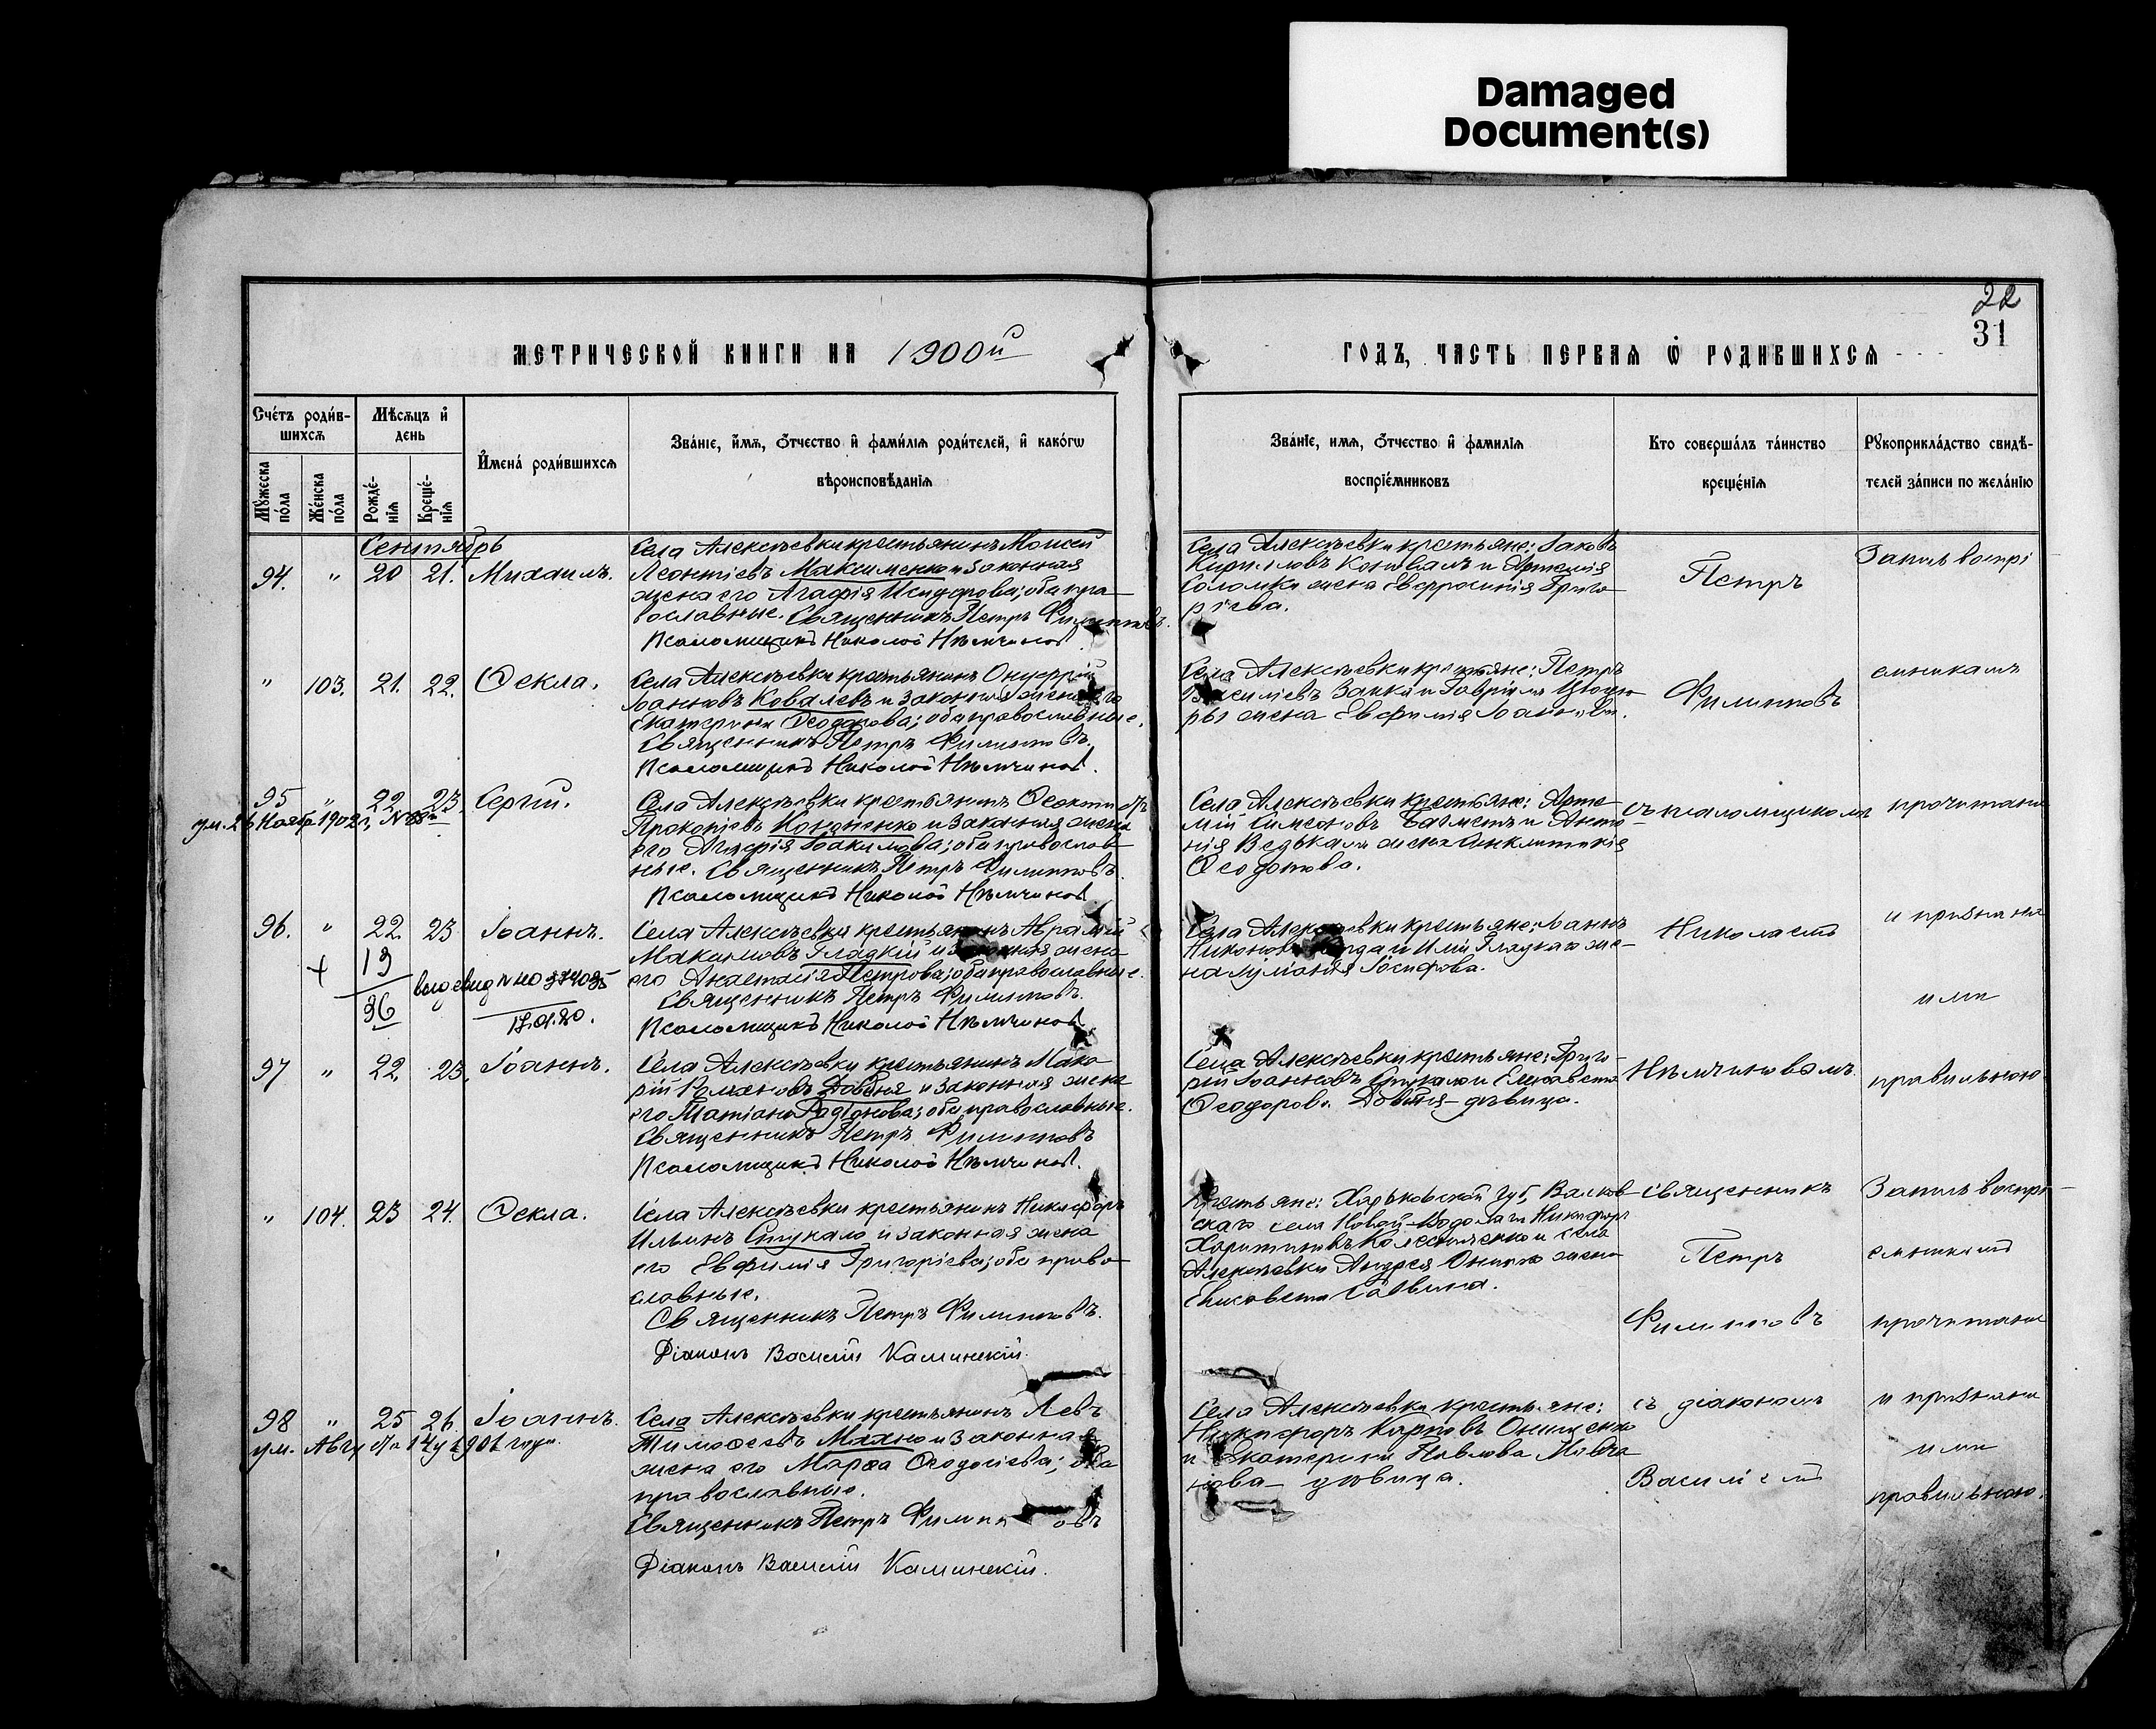 Damaged
Document(s)
22
31
МЕТРИЧЕСКОЙ КНИГИ НА 1900й
ГОДЪ, ЧАСТЬ ПЕРВАЯ Ѡ РОДИВШИХСЯ
Счетъ родив-
шихся
Мужеска
пола
Женска
пола
Мѣсяцъ и
день
Рожде-
нія
Креще-
нія
Имена родившихся
Званіе, имя, отчество и фамилія родителей, и какогω
вѣроисповѣданія
Званіе, имя, отчество и фамилія
воспріемниковъ
Кто совершалъ таинство
крещенія
Рукоприкладство свидѣ-
телей записи по желанію
Сентябрь
94. " 20 21. Михаилъ.
Села Алексѣевки крестьянинъ Моисей
Леонтіевъ Максименко и законная
жена его Агафія Исидорова; оба пра-
вославные. Священникъ Петръ Филипповъ.
Псаломщикъ Николай Нѣмчинов
Села Алексѣевки крестьяне: Іаковъ
Кирилловъ Коновалъ и Артемія
Соломки жена Евфросинія Григо-
ріева.
Петръ
Запись воспрі
" 103. 21. 22. Ѳекла.
Села Алексѣевки крестьянинъ Онуфрій
Іоанновъ Ковалевъ и законная жена его
Екатерина Ѳеодорова; оба православные.
Священникъ Петръ Филипповъ.
Псаломщикъ Николай Нѣмчинов.
Села Алексѣевки крестьяне: Петръ
Василіевъ Заика и Гавріила
ры жена Евфимія Іоаннова.
Филипповъ
емникамъ
95 " 22. 23. Сергій.
ум. 26 Ноября 1902 г.
Села Алексѣевки крестьянинъ Ѳеоктистъ
Прокопіевъ Кононенко и законная жена
его Агафія Іоакимова; оба православ-
ные. Священникъ Петръ Филипповъ.
Псаломщикъ Николай Нѣмчинов
Села Алексѣевки крестьяне: Арте-
мій Симеоновъ и Анто-
нія жена Синклитикія
Ѳеодотова.
съ псаломщикомъ
прочитана
96. " 22. 23 Іоаннъ.
+ 19
96
17.01.20.
Села Алексѣевки крестьянинъ Аврамій
Максимовъ Гладкій и законная жена
его Анастасія Петрова; оба православные.
Священникъ Петръ Филипповъ.
Псаломщикъ Николай Нѣмчинов
Села Алексѣевки крестьяне: Іоаннъ
Никоновъ и Иліи Гладкаго же-
на Іосифова.
Николаемъ
и признана
ими
97 " 22. 23. Іоаннъ.
Села Алексѣевки крестьянинъ Мака-
рій Романовъ Довбня и законная жена
его Татіана Родіонова; оба православные.
Священникъ Петръ Филипповъ
Псаломщикъ Николай Нѣмчинов.
Села Алексѣевки крестьяне: Григо-
рій Іоанновъ Стукало и Елисавета
Ѳеодорова Довбня - дѣвица.
Нѣмчиновымъ.
правильною
" 104. 23 24. Ѳекла.
Села Алексѣевки крестьянинъ Никифоръ
Ильинъ Стукало и законная жена
его Евфимія Григоріева; оба право-
славные.
Священникъ Петръ Филипповъ.
Діаконъ Василій Каминскій.
Крестьяне: Харьковской губ, Валков-
скаго села Новой-Водолаги Никифоръ
Харитоновъ Колесниченко и села
Алексѣевки Андрея Онипко жена
Елисавета Саввина.
священникъ
Петръ
Филипповъ
Запись воспрі-
емниками
прочитана
98 " 25 26. Іоаннъ.
ум. Августа 14 1901 года.
Села Алексѣевки крестьянинъ Левъ
Тимоѳеевъ Махно и законная
жена его Марѳа Ѳеодосіева; оба
православные.
Священникъ Петръ Филипповъ
Діаконъ Василій Каминскій.
Села Алексѣевки крестьяне:
Никифоръ Карповъ Онищенко
и Екатерина Павлова
дѣвица.
съ діакономъ
Василіемъ
и признана
ими
правильною.